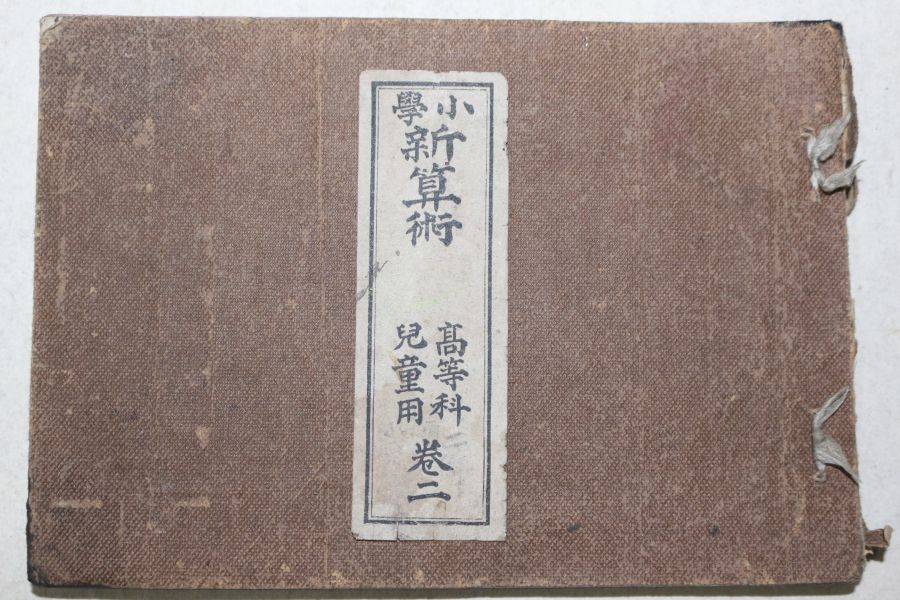 小學
新算術
高等科
兒童用
卷二